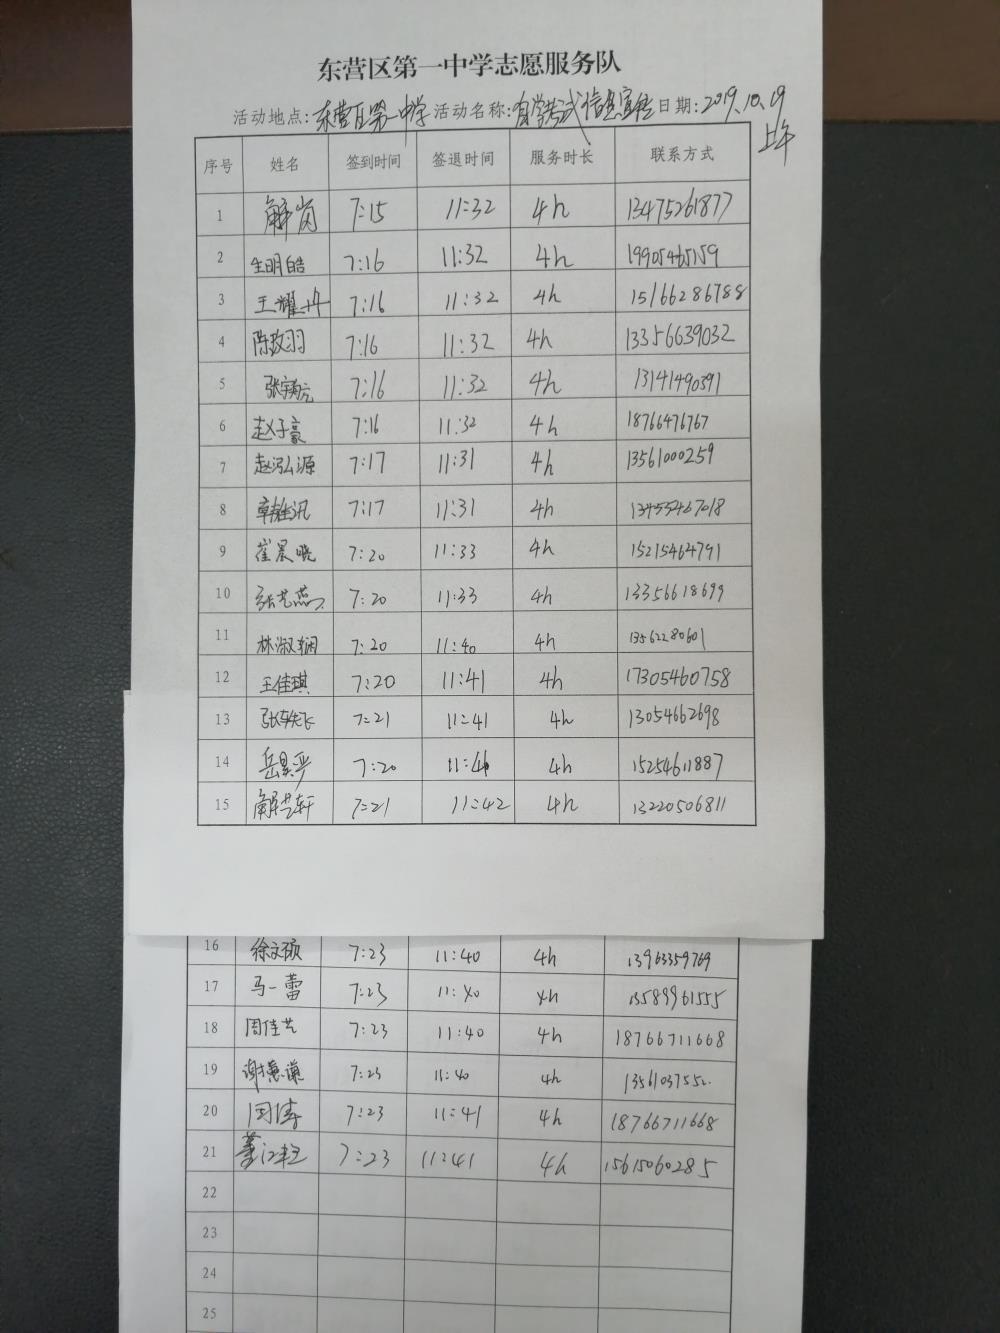 东营区第一中学志愿服务队
活动地点:东营区第一中学 活动名称:自学考试信息宣传 日期:2019.10.19
上午
序号 姓名 签到时间 签退时间 服务时长 联系方式
1 解岗 7:15 11:32 4h 13475261877
2 生明皓 7:16 11:32 4h 19905465159
3 王耀 7:16 11:32 4h 15166286788
4 7:16 11:32 4h 13356639032
5 7:16 11:32 4h 13141490391
6 赵子豪 7:16 11:32 4h 18766476767
7 赵泓源 7:17 11:31 4h 13561000259
8 7:17 11:31 4h 13455467018
9 崔晨晓 7:20 11:33 4h 15215464791
10 张艺燕 7:20 11:33 4h 13356618699
11 林淑娴 7:20 11:40 4h 13562280601
12 王佳琪 7:20 11:41 4h 17305460758
13 张轶飞 7:21 11:41 4h 13054662698
14 7:20 11:41 4h 15254611887
15 解芸轩 7:21 11:42 4h 13220506811
16 徐文硕 7:23 11:40 4h 13963359769
17 马一蕾 7:23 11:40 4h 13589961555
18 周佳艺 7:23 11:40 4h 18766711668
19 谢慧谦 7:23 11:40 4h
20 7:23 11:41 4h 18766711668
21 7:23 11:41 4h 15615060285
22
23
24
25